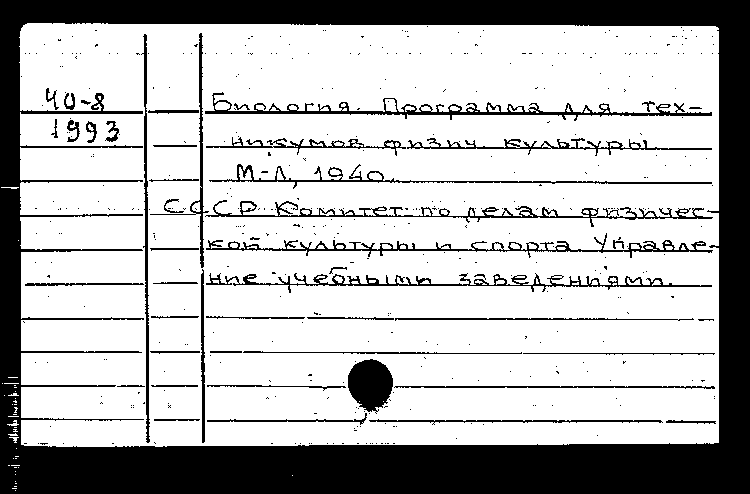 40-8 Биология. Программа для тех-
1993 никумов физич. культуры
М.-Л., 1940.
СССР Комитет по делам физичес-
кой культуры и спорта Управле-
ние учебными заведениями.